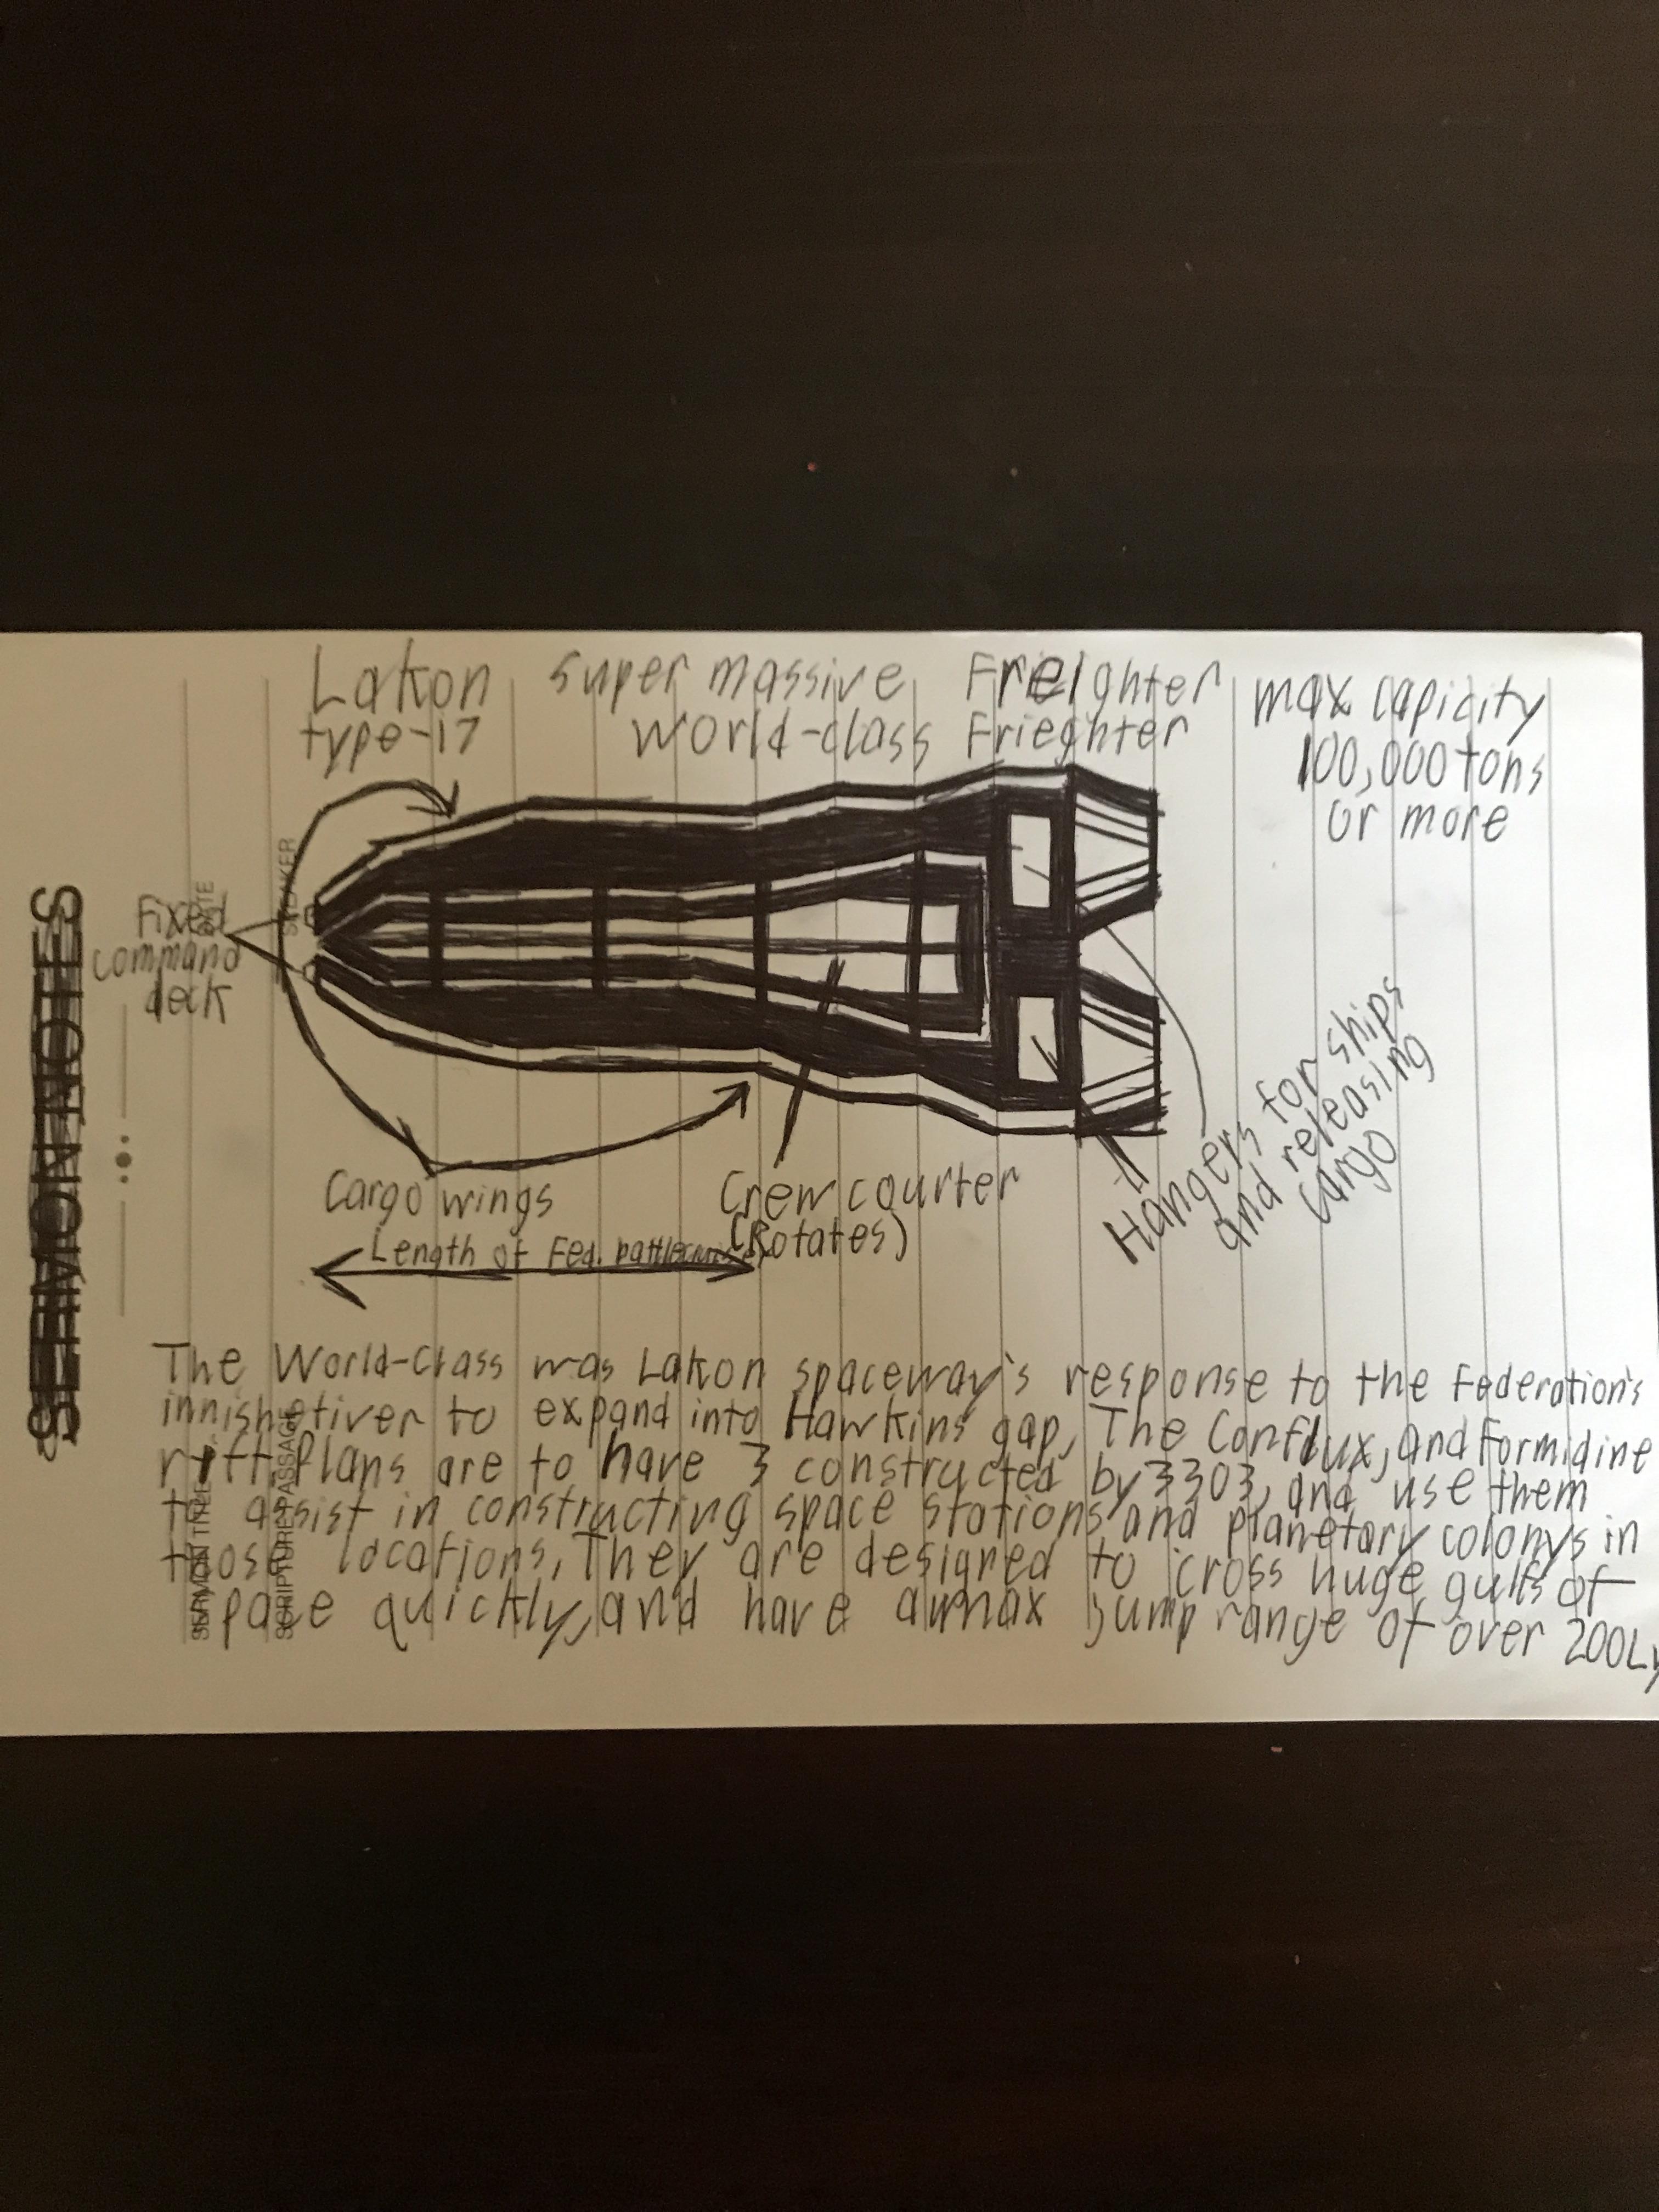 Lakon super massive Freighter
type-17 World-class Frieghter
max capicity
100,000 tons
or more
Fixed
command
deck
Cargo wings
Crew courter
(Rotates)
Hangers for ships
and releasing
cargo
Length of Fed. battlecruiser
The World-Class was Lakon spaceway's response to the Federation's
innishetiver to expand into Hawkins gap, The Conflux, and Formidine
rift. Plans are to have 3 constructed by 3303, and use them
to assist in constructing space stations and planetary colonys in
those locations, They are designed to cross huge gulfs of
space quickly, and have a max jump range of over 200Ly
SERMON NOTES
SPEAKER
DATE
SERMON TITLE
SCRIPTURE PASSAGE